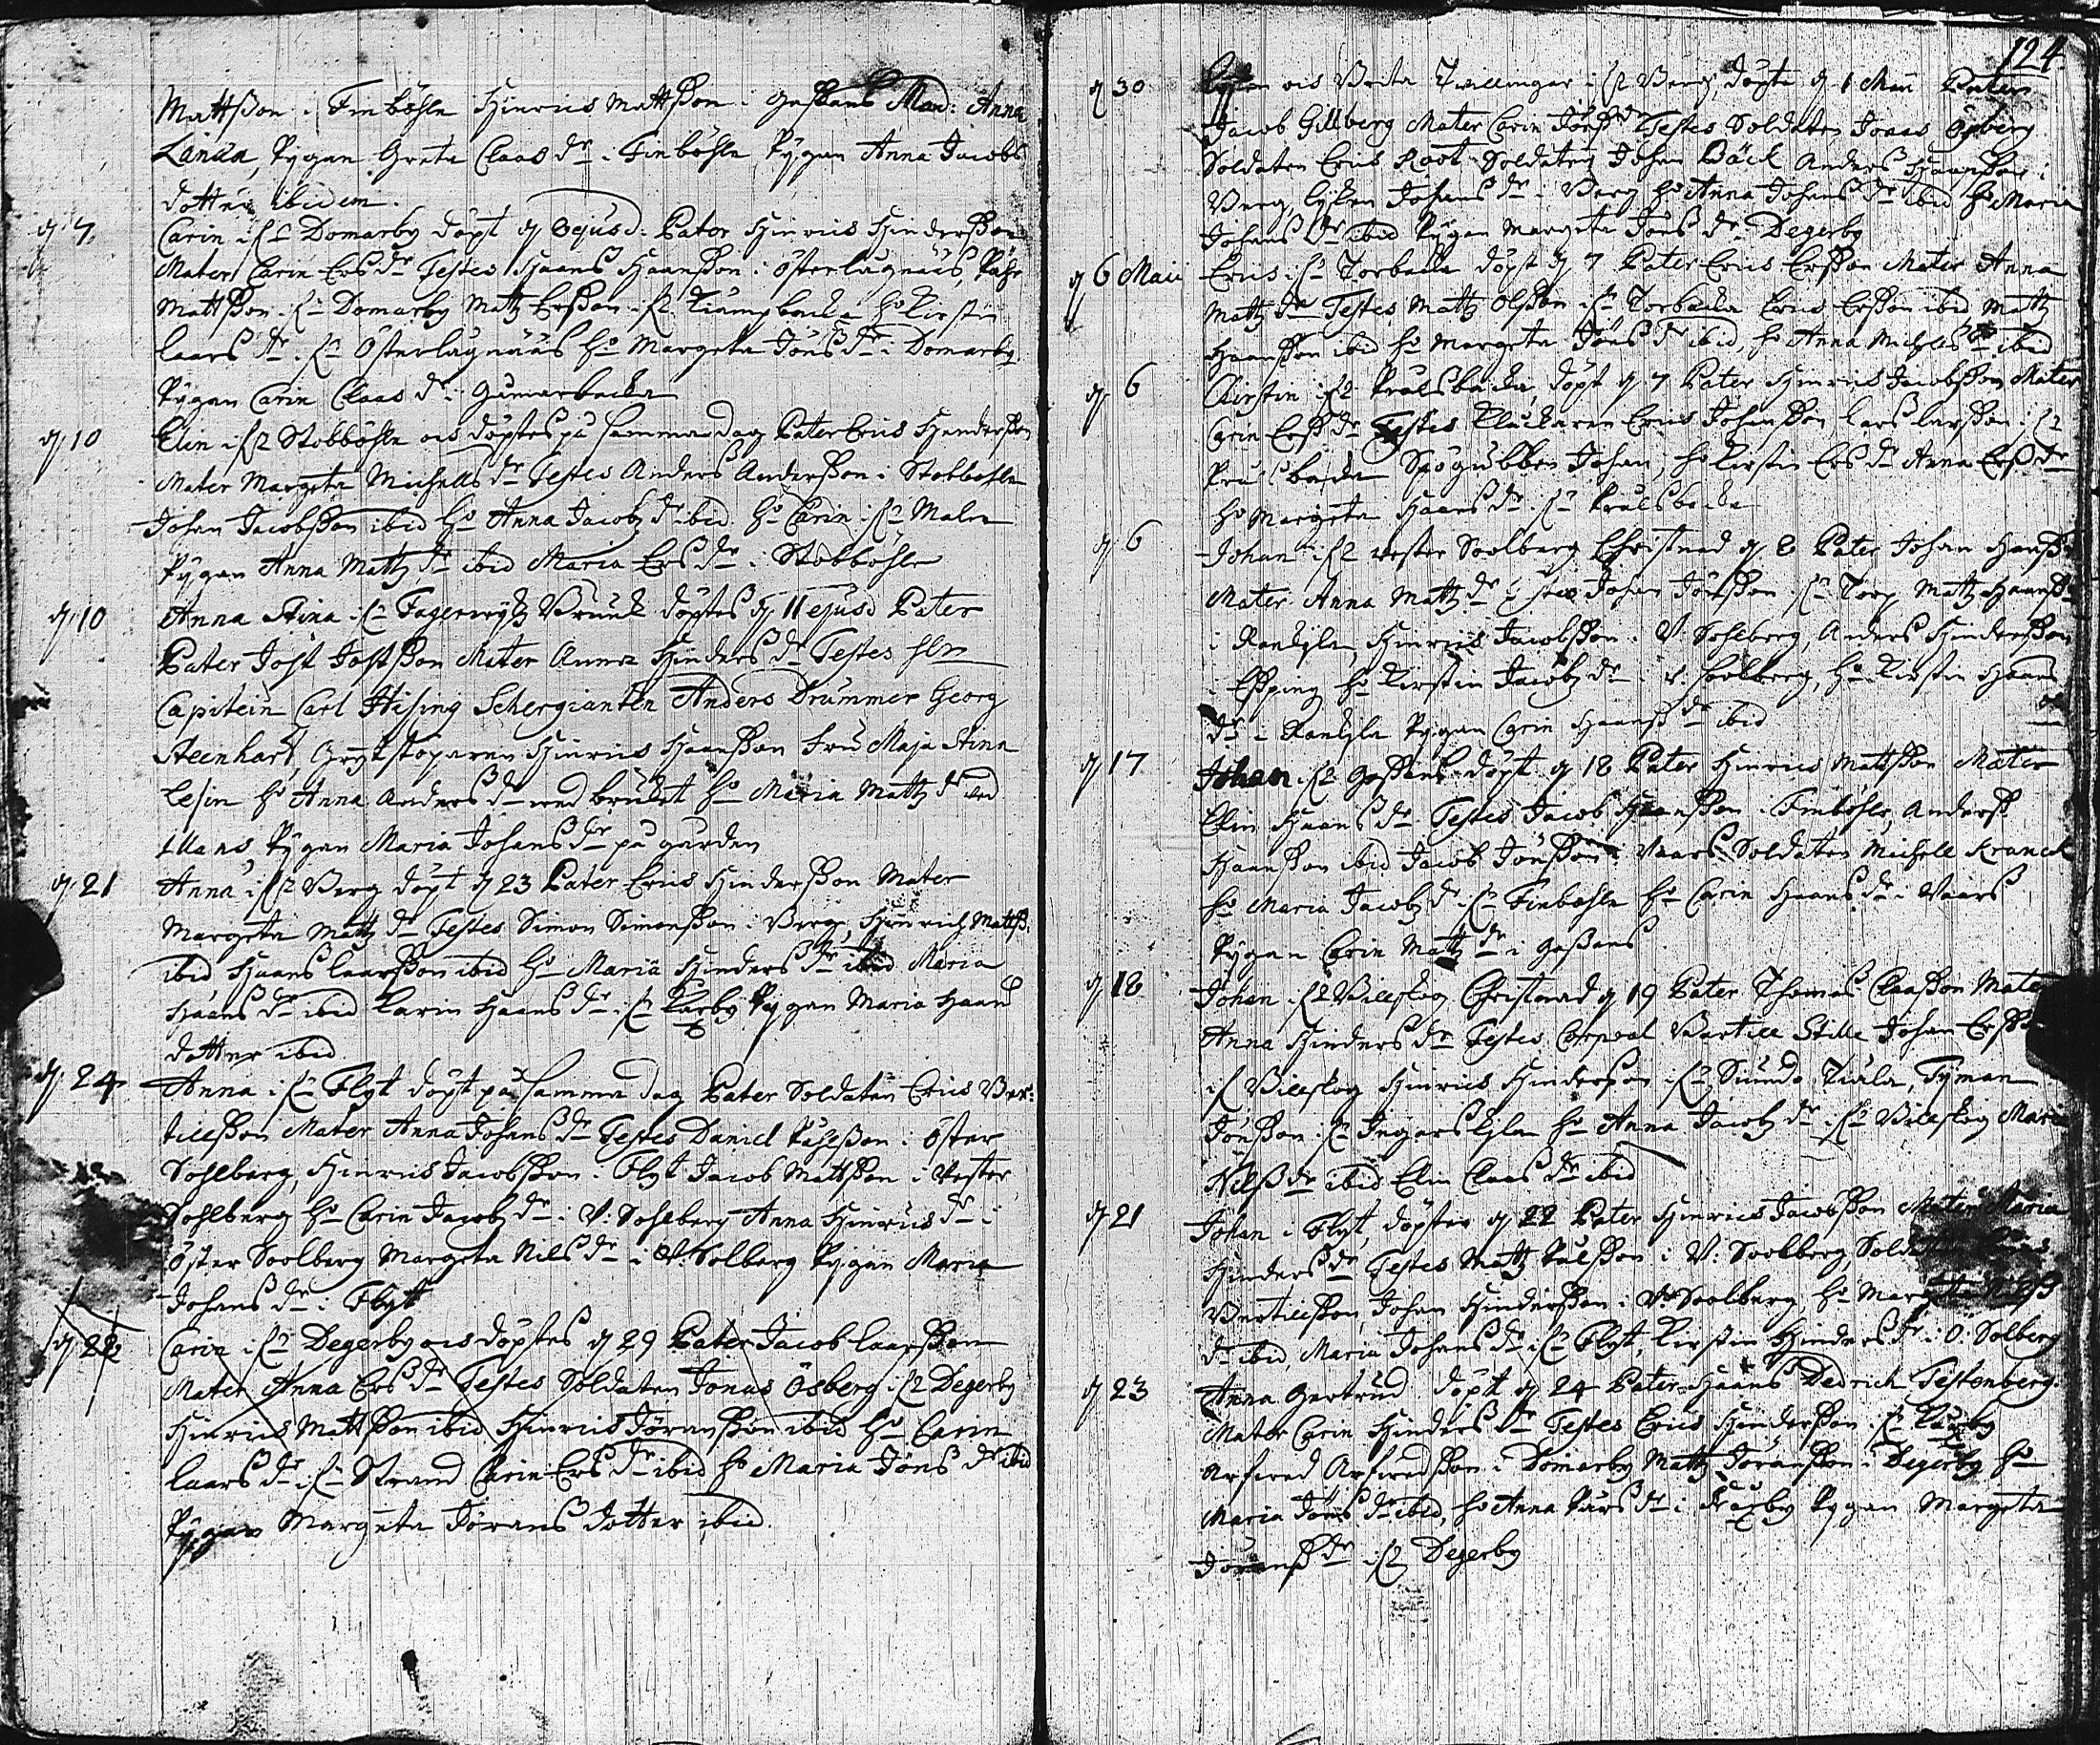 Mattsson i Finböhle Hinrics Mattsson i Gossans Mad: Anna
Lanæa, Pygan Greta Claas dr i Finböhle Pygan Anna Jacobs
dotter ibidem.
d. 7. Carin i Domarby döpt d. 8 ejusd. Pater Hinrics Hindersson
Mater Carin Ers dr Testes Haans Haansson i Österlugnääs, Påhr
Mattsson i Domarby Mattz Ersson i Kiämpbacka ho Kirstin
Laars dr i Österlugnääs ho Margeta Jöns dr i Domarby
Pygan Carin Claas dr i Gumarbacka
d. 10 Elin i Stobböhle ois döptes på samma dag Pater Erics Hindersson
Mater Margeta Michells dr Testes Anders Andersson i Stobböhle
Johan Jacobsson ibid ho Anna Jacobz dr ibid ho Carin i Malm
Pygan Anna Mattz dr ibid Maria Ers dr i Stobböhle
d. 10 Anna Stina i Fagerwijks Bruuk döptes d. 11 ejusd Pater
Pater Jost Jostsson Mater Anna Hinders dr Testes Hln
Capitein Carl Hising Schergianten Anders Drummer Georg
Steenhart, Grytstöparen Hinrics Haansson Fru Maja Stina
Lesin ho Anna Anders dr wed bruket ho Maria Mattz dr wed
Pygan Maria Johans dr på gården
d. 21 Anna i Berg döpt d. 23 Pater Erics Hindersson Mater
Margeta Mattz dr Testes Simon Simonsson i Berg, Hinrich Mattss.
ibid Haans Laarsson ibid ho Maria Hinders dr ibid Maria
Haans dr ibid Karin Haans dr i Karby Pygan Maria Haans
dotter ibid
d. 24 Anna i Flyt döpt på samma dag Pater Soldaten Erics Ber:
tillsson Mater Anna Johans dr Testes Daniel Påhlsson i Öster
Sohlberg, Hinrics Jacobsson i Flyt Jacob Mattsson i Wester
Sohlberg ho Carin Jacobz dr i W. Sohlberg Anna Hinrics dr i
Öster Soolberg Margeta Nils dr i W. Solberg Pygan Maria
Johans dr i Flyt
d. 22 Carin i Degerby ois döptes d. 29 Pater Jacob Laarsson
Mater Anna Ers dr Testes Soldaten Jonas Ösberg i Degerby
Hinrics Mattsson ibid Hinrics Jöransson ibid ho Carin
Laars dr i Strand Carin Ers dr ibid ho Maria Jöns dr ibid
Pygan Margeta Jörans dotter ibid.
124.
d. 30 ois Beata Twillingar i Berg, döpte d. 1 Maii Pater
Jacob Gillberg Mater Carin Jönss dr Testes Soldaten Jonas Ösberg
Soldaten Erics Root Soldaten Johan Bäck Anders Haansson i
Berg, Lijsken Johans dr i Berg ho Anna Johans dr ibid ho Maria
Johans dr ibid Pygan Margeta Jöns dr Degerby
d. 6 Maii Erics i Torbacka döpt d. 7 Pater Erics Ersson Mater Anna
Mattz dr Testes Mattz Olsson i Torbacka Erics Ersson ibid Mattz
Haansson ibid ho Margeta Jöns dr ibid, ho Anna Michells dr ibid
d. 6 Kirstin i Krälsbacka, döpt d. 7 Pater Hinrics Jacobsson Mater
Carin Erss dr Testes Klåckaren Erics Johansson Lars Larsson i
Spögubben Johan, ho Kirstin Ers dr Anna Erss dr
ho Margeta Haans dr i Krälsbacka
d. 6 Johan i wester Soolberg Christnad d. 8 Pater Johan Hanss
Mater Anna Mattz dr Johan Jönsson i Torp Mattz Haanss
i Rankyla, Hinrics Jacobsson i W. Sohlberg, Anders Hindersson
i Essping ho Kirstin Jacobz dr i W. Soolberg, ho Kirstin Haans
dr i Rankyla Pygan Carin Haans dr ibid
d. 17 Johan i Gossans döpt d. 18 Pater Hinrics Mattsson Mater
Elin Haans dr Testes Jacob Haansson i Finböhle, Anderss
Haansson ibid Jacob Jönsson i Waars Soldaten Michell Kranck
ho Maria Jacobz dr i Finböhle ho Carin Haans dr i Waars
Pygan Carin Mattz dr i Gossans
d. 18 Johan i Billskog Christnad d. 19 Pater Thomas Claasson Mater
Anna Hinders dr Testes Corporal Bertill Stille Johan Erss
i Billskog Hinrics Hindersson i Sunds Tiäla, Tijman
Jönsson i Ingarskyla ho Anna Jacobz dr i Billskog Maria
Nilss dr ibid Elin Claas dr ibid
d. 21 Johan i Flyt, döptes d. 22 Pater Hinrics Jacobsson Mater Maria
Hinders dr Testes Mattz Pålsson i W: Soolberg,
Bertillsson, Johan Hindersson i W. Soolberg, ho Margeta
dr ibid, Maria Johans dr i Flyt, Kirstin Hinders dr i Ö. Solberg
d. 23 Anna Gertrud döpt d. 24 Pater Haans Dedrich Testenberg
Mater Carin Hinders dr Testes Erics Hindersson i Karby
Arfwed Arfwedsson i Domarby Mattz Jöransson i Degerby ho
Maria Jöns dr ibid, ho Anna Påvs dr i Karby Pygan Margeta
Jöranss dr i Degerby